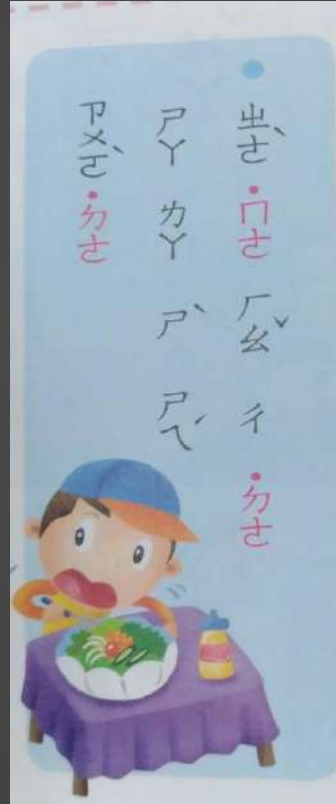 ㄓㄜˋ ˙ㄇㄜ ㄏㄠˇ ㄔ ˙ㄉㄜ
ㄕㄚ ㄌㄚ ㄕˋ ㄕㄟˊ
ㄗㄨㄛˋ ˙ㄉㄜ